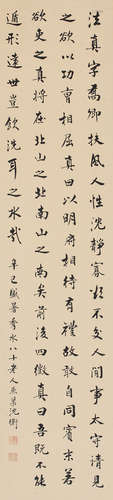 法真字喬卿扶風人性沈靜寡欲不交人間事太守請見
之欲以功曹相屈真曰以明府相待有禮故敢自同賓末若
欲吏之真將在北山之北南山之南矣前後四徵真曰吾既不能
遁形遠世豈飲洗耳之水哉 辛巳臘 秀水八十老人兼巢沈衛